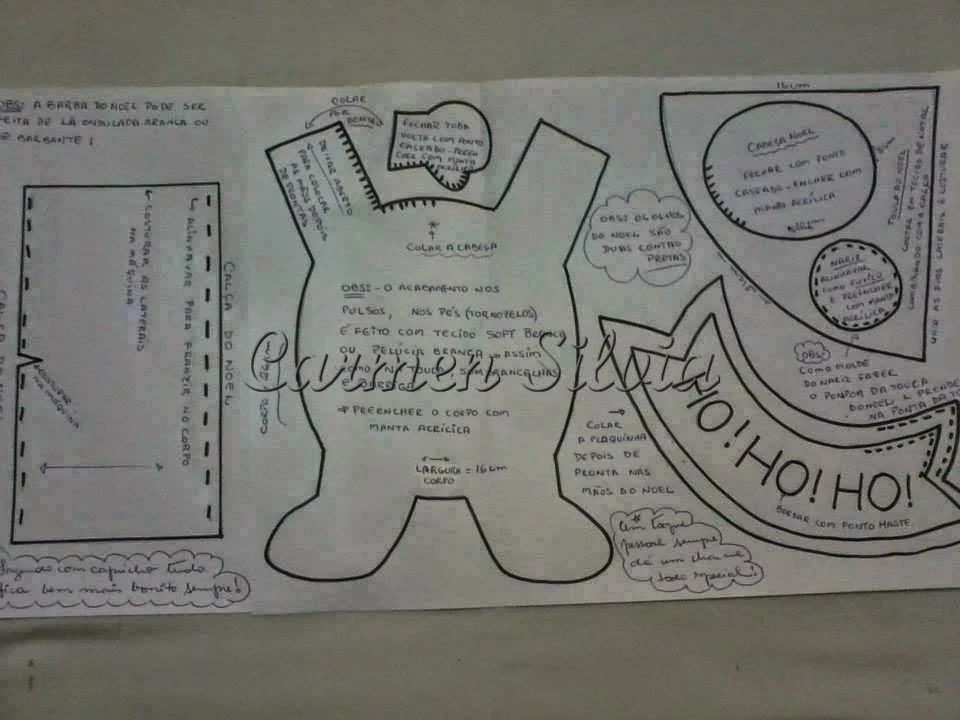 OBS: A BARBA DO NOEL PODE SER
FEITA DE LÃ ONDULADA BRANCA OU
DE BARBANTE!
CALÇA DO NOEL
ALINHAVAR PARA FRANZIR NO CORPO
COSTURAR AS LATERAIS
NA MÁQUINA
NA MÁQUINA
com capricho tudo
fica bem mais bonito sempre!
COLAR
POR
DENTRO
DEIXAR ABERTO
PARA COLOCAR
AS MÃOS DEPOIS
DE PRONTAS
FECHAR TODA
VOLTA COM PONTO
CASEADO - PREEN
CHER COM MANTA
ACRÍLICA
*
COLAR A CABEÇA
OBS: - O ACABAMENTO NOS
PULSOS, NOS PÉS (TORNOZELOS)
É FEITO COM TECIDO SOFT BRANCO
OU PELÚCIA BRANCA, ASSIM
COMO NA TOUCA, SOBRANCELHAS
E BIGODE
→ PREENCHER O CORPO COM
MANTA ACRÍLICA
LARGURA = 16 cm
CORPO
CORPO
Carmen Silvia
OBS: OS OLHOS
DO NOEL SÃO
DUAS CONTAS
PRETAS
16cm
CABEÇA NOEL
FECHAR COM PONTO
CASEADO - ENCHER COM
MANTA ACRÍLICA
NARIZ
ALINHAVAR
COMO FUXICO
E PREENCHER
COM MANTA
ACRÍLICA
TOUCA DO NOEL
CORTAR EM TECIDO DE NATAL
COMBINANDO COM A CALÇA
UNIR AS DUAS LATERAIS E COSTURAR
OBS:
COMO MOLDE
DO NARIZ FAZER
O POMPOM DA TOUCA
DO NOEL E PRENDER
NA PONTA DA
HO! HO! HO!
BORDAR COM PONTO HASTE
→
COLAR
A PLAQUINHA
DEPOIS DE
PRONTA NAS
MÃOS DO NOEL
Um toque
pessoal sempre
dá um charme
todo especial!